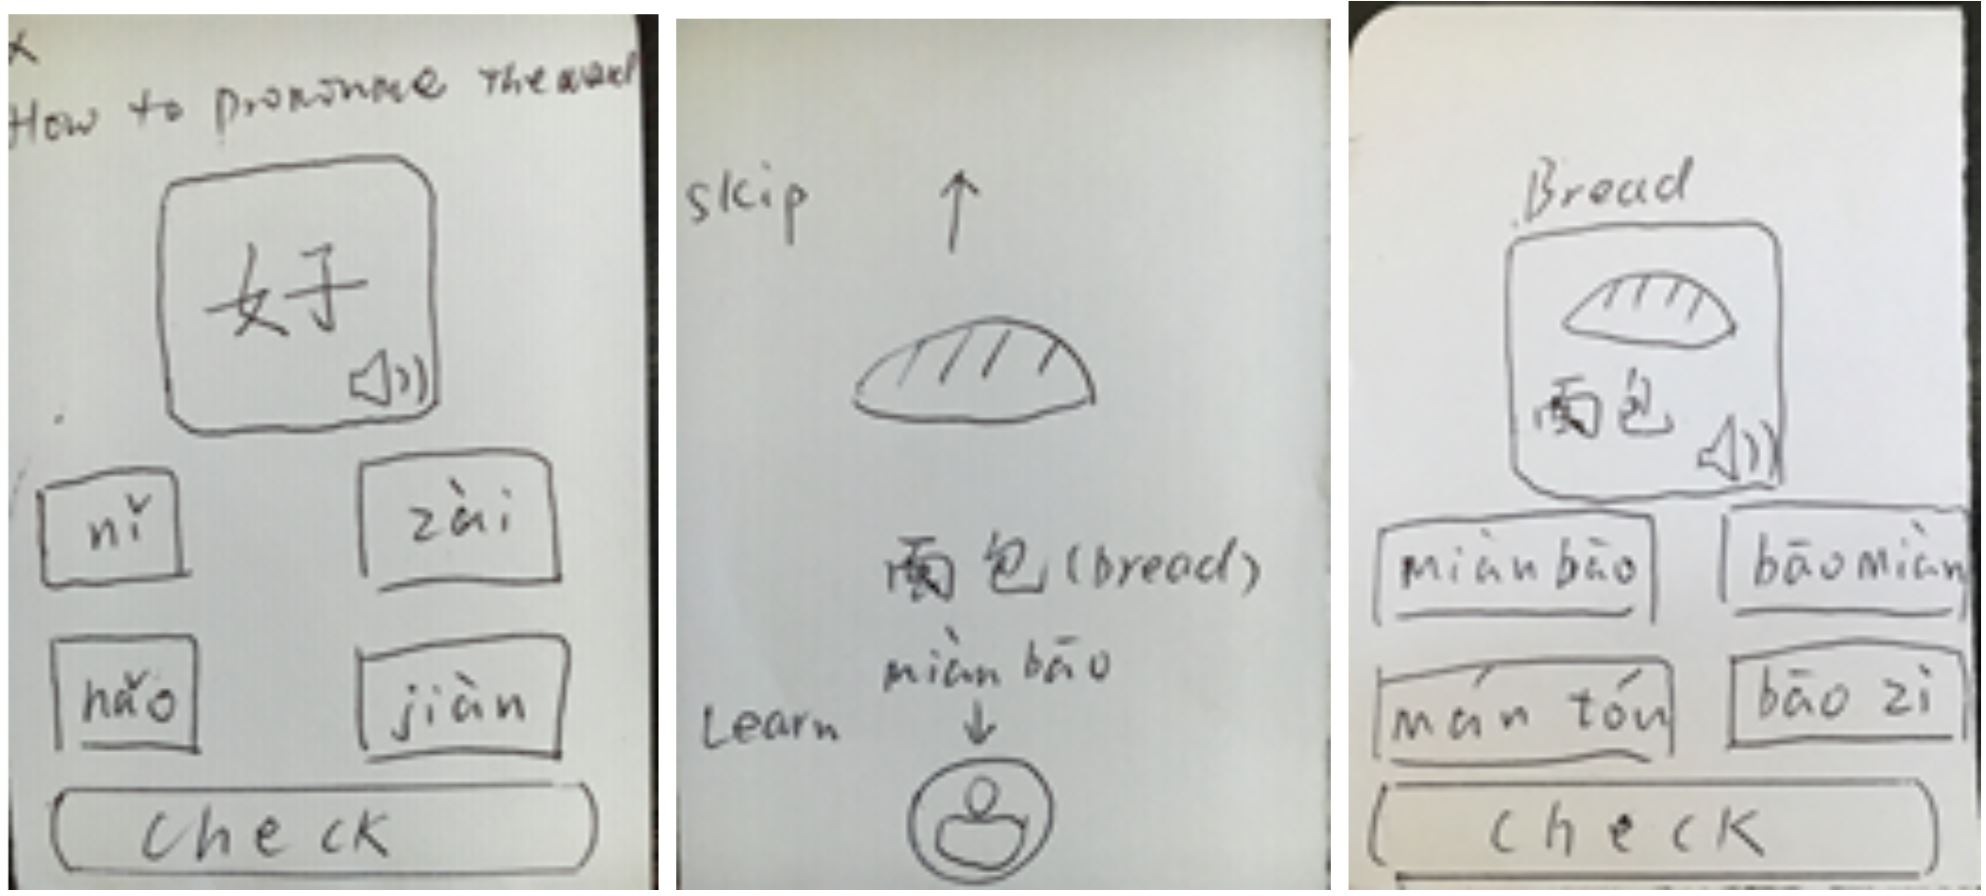 X
How to pronounce the word
好
nǐ zài
hǎo jiàn
Check
Skip
面包 (bread)
miàn bāo
Learn
Bread
面包
miàn bāo bāo miàn
mán tóu bāo zì
Check